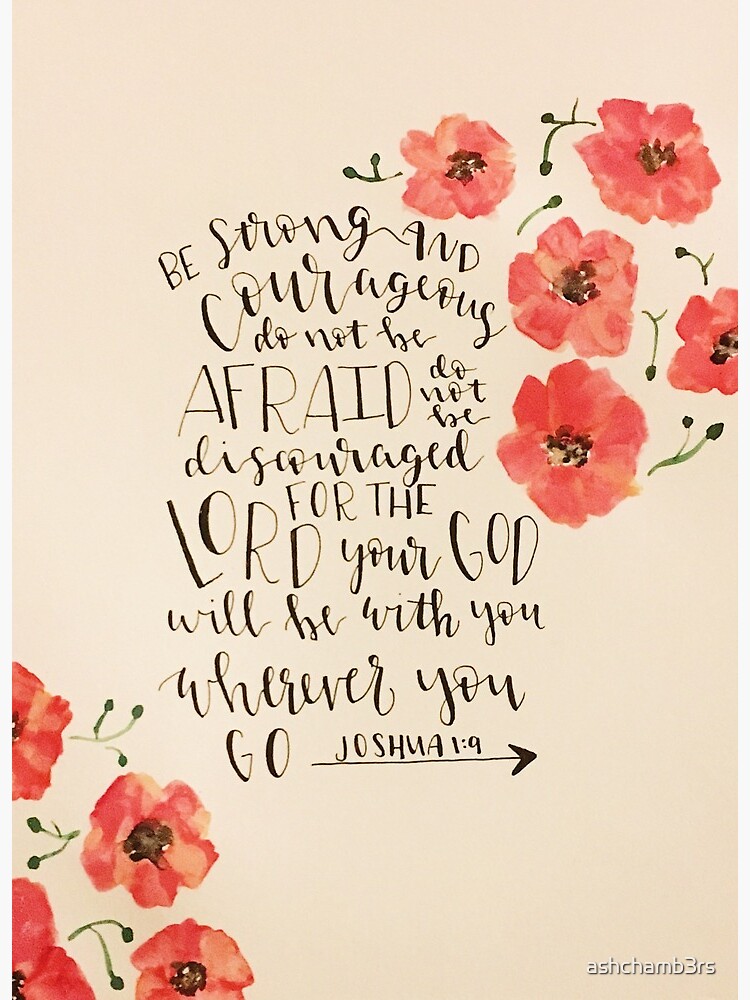 BE strong AND
courageous
do not be
AFRAID do
not
be
discouraged
FOR THE
LORD your GOD
will be with you
wherever you
GO JOSHUA 1:9
ashchamb3rs